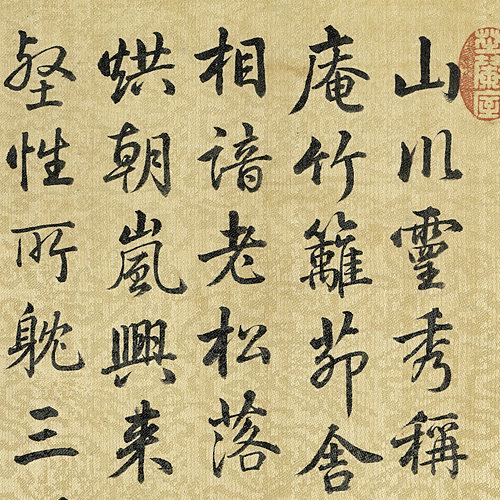 山川靈秀稱
庵竹籬茆舍
相諳老松落
烘朝嵐興来
壑性所躭三